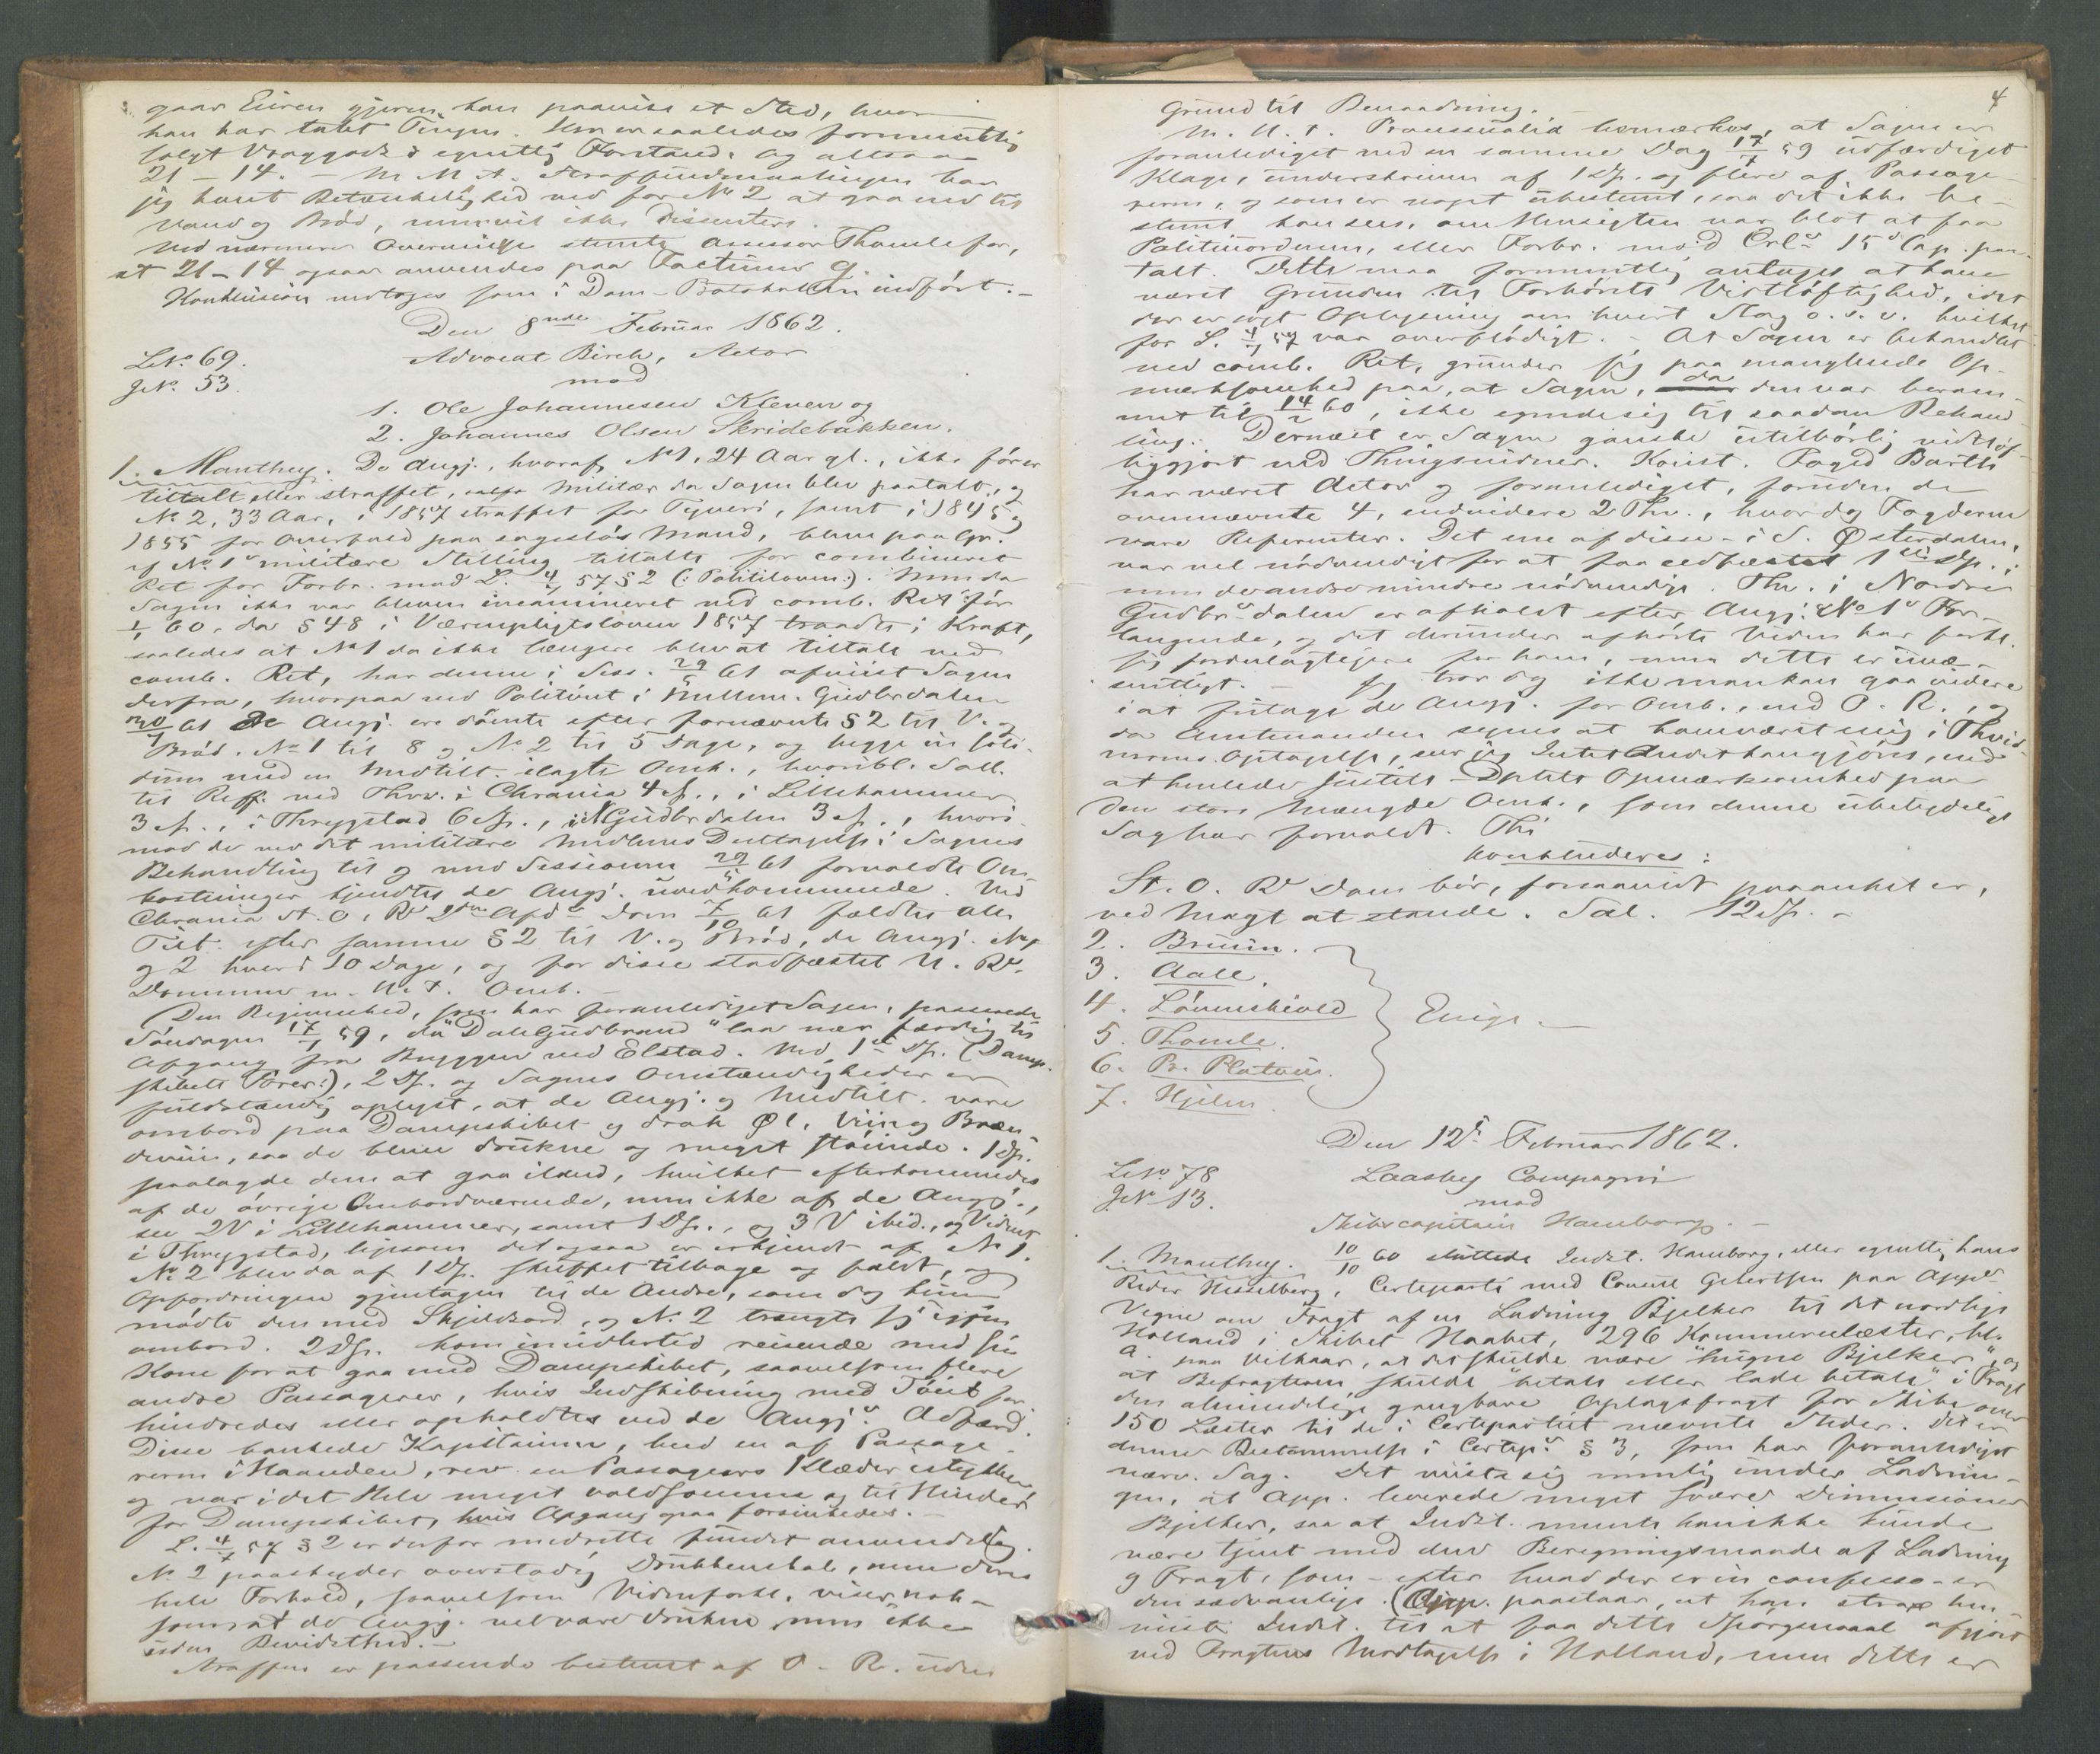 gaar Eieren gjerne han paavise et Sted, hvor
han har tabt Tingen. Her er saaledes formentlig
solgt Vraggods i egentlig Forstand. Og altsaa
21-14. - M. M. A. Straffeudmaalingen har
jeg havt Betænkelighed ved for No 2 at gaa ned til
Vand og Brød, men vil ikke dissentere.
Ved nærmere Overveielse stemte Assessor Thomle for,
at 21-14 ogsaa anvendes paa Factumet g.
Konklusion modtoges som i Dom-Protokollen indført. -
Den 8nde Februar 1862.
LNo. 69.
JNo. 53.
Advocat Birch, Actor
mod
1. Ole Johannesen Kleven og
2. Johannes Olsen Skridebakken.
1. Manthey. De Angj., hvoraf No 1, 24 Aar gl., ikke før er
tiltalt eller straffet, Militær da Sagen blev paatalt, og
No 2, 33 Aar, i 1857 straffet for Tyveri, samt i 1845 og
1855 for Overfald paa sagesløs Mand, bleve paa Gr.
af No 1s militære Stilling tiltalte for combineret
Ret for Forbr. mod L. 4/7 57 § 2 (: Politiloven :). Men da
Sagen ikke var bleven incamineret ved comb. Ret før
1/1 60, da § 48 i Værnepligtsloven 1857 traadte i Kraft,
saaledes at No 1 da ikke længere blev at tiltale ved
comb. Ret, har denne i Sess. 29/5 61 afviist Sagen
derfra, hvorpaa ved Politiret i Mellem-Gudbrdalen
30/7 61 De Angj. ere dømte efter fornævnte § 2 til V. og
Brød. No 1 til 8 og No 2 til 5 Dage, og begge in soli-
dum med en Medtilt. ilagte Omk., hvoribl. Sall.
til Reff. ved Thvv. i Chrania 4 Sp., i Lillehammer
3 Sp., i Thrygstad 6 Sp., i N Gudbrdalen 3 Sp., hvori-
mod de ved det militære Medlems Deeltagelse i Sagens
Behandling til og med Sessionen 29/5 61 forvoldte Om-
kostninger kjendtes de Angj. uvedkommende. Ved
Chrania St. O. Rs 2den Afds Dom 7/10 61 fældtes alle
Tilt. efter samme § 2 til V. og Brød, de Angj. No 1
og 2 hver i 10 Dage, og for disse stadfæstet U. Rs
Dommen m. H. t. Omk. -
Den Begivenhed, som har foranlediget Sagen, passerede
Søndagen 17/7 59, da "Dale Gudbrand" laa nær færdig til
Afgang fra Bryggen ved Elstad. Ved 1ste Dp. (Damp-
skibets Fører:), 2 Dp. og Sagens Omstændigheder er
fuldstændig oplyst, at de Angj. og Medtilt. vare
ombord paa Dampskibet og drak Øl, Viin og Bræn-
deviin, saa de bleve drukne og meget støiende. 1 Dp.
paalagde dem at gaa iland, hvilket efterkommedes
af de øvrige Ombordværende, men ikke af de Angj.,
see 2 V i Lillehammer, samt 1 Dp., og 3 V ibid., og Vidnet
i Thrygstad, ligesom det ogsaa er erkjendt af No 1.
No 2 blev da af 1 Dp. skuffet tilbage og faldt, og
Opfordringen gjentagen til de Andre, som dog kun
mødte den med Skjeldsord, og No. 2 trængte sig igjen
ombord. 2 Dp. kom imidlertid reisende med sin
Kone for at gaa med Dampskibet, saavelsom flere
andre Passagerer, hvis Indskibning med Tøiet for-
hindredes eller opholdtes ved de Angjs Adfærd.
Disse bankede Kapitainen, bed en af Passage-
rerne i Haanden, rev en Passageers Klæder istykker
og var i det Hele meget voldsomme og til Hinder
for Dampskibet, hvis Afgang ogsaa forsinkedes. -
L. 4/7 57 § 2 er derfor medrette fundet anvendelig.
No 2 paaskyder overstadig Drukkenskab, men deres
hele Forhold, saavelsom Vidneforkl. viser nok-
som at de Angj. vel vare drukne, men ikke
uden Bevidsthed. -
Straffen er passende bestemt af O. R. uden
4
Grund til Benaadning. -
M. H. t. Processualia bemærkes, at Sagen er
foranlediget ved en samme Dag 17/7 59 udfærdiget
Klage, underskreven af 1 Dp. og flere af Passage-
rerne, og som er noget ubestemt, saa det ikke be-
stemt kan sees, om Hensigten var blot at faa
Politiuordenen, eller Forbr. mod Crls 15de Cap. paa-
talt. Dette maa formentlig antages at have
været Grunden til Forhørets Vidtløftighed, idet
der er søgt Oplysning om hvert Slag o. s. v. hvilket
for L. 4/7 57 var overflødigt. - At Sagen er behandlet
ved comb. Ret, grunder sig paa manglende Op-
mærksomhed paa, at Sagen, da den var beram-
met til 14/2 60, ikke egnede sig til saadan Behand-
ling. Dernæst er Sagen ganske utilbørlig vidtløf-
tiggjort ved Thingsvidner. Const. Foged Barth
har været Actor og foranlediget, foruden de
ovennævnte 4, endvidere 2 Thv., hvor dog Fogderne
vare Referenter. Det ene af disse - i S. Østerdalen,
var vel nødvendigt for at faa edfæstet 1ste Dp.,
men de andre mindre nødvendige. Thv. i Nordre
Gudbrsdalen er afholdt efter Angj. No 1s For-
langende, og det derunder afhørte Vidne har forkl.
sig fordelagtigere for ham, men dette er uvæ-
sentligt. - Jeg tror dog ikke man kan gaa videre
i at fritage de Angj. for Omk., end O. R., og
da Amtmanden synes at have været enig i Thvid-
nernes Optagelse, seer jeg Intet Andet kan gjøres, end
at henlede Justits-Dptets Opmærksomhed paa
den store Mængde Omk., som denne ubetydelige
Sag har forvoldt. Thi
konkluderes:
St. O. Rs Dom bør, forsaavidt paaanket er,
ved Magt at stande. Sal. 12 Sp. -
2. Bruun.
3. Aall.
4. Løvenskiold
5. Thomle.
6. B. Platou.
7. Hjelm.
Enige. -
Den 12te Februar 1862.
LNo. 78
JNo. 13.
Laasby Compagni
mod
Skibscapitain Hamborg. -
1. Manthey. 10/10 60 sluttede Indst. Hamborg, eller egentlig hans
Reder Hesselberg, Certeparti med Consul Gebertsen paa Apps
Vegne om Fragt af en Ladning Bjelker til det nordlige
Holland i Skibet Haabet, 296 Kommercelæster, bl.
a. paa Vilkaar, at det skulde være "hugne Bjelker", og
at Befragteren skulde "betale eller lade betale" i Fragt
den almindelige gangbare Oplagsfragt for Skibe over
150 Læster til de i Certepartiet nævnte Steder. Det er
denne Bestemmelse i Certeps § 3, som har foranlediget
nærv. Sag. Det viiste sig nemlig under Ladnin-
gen, at App. leverede meget svære Dimensioner
Bjelker, saa at Indst. mente han ikke kunde
være tjent med den Beregningsmaade af Ladning
og Fragt, som - efter hvad der er in confesso - er
den sædvanlige. (App. paastaar, at han strax hen-
viste Indst. til at faa dette Spørgsmaal afgjort
ved Fragtens Modtagelse i Holland, men dette er